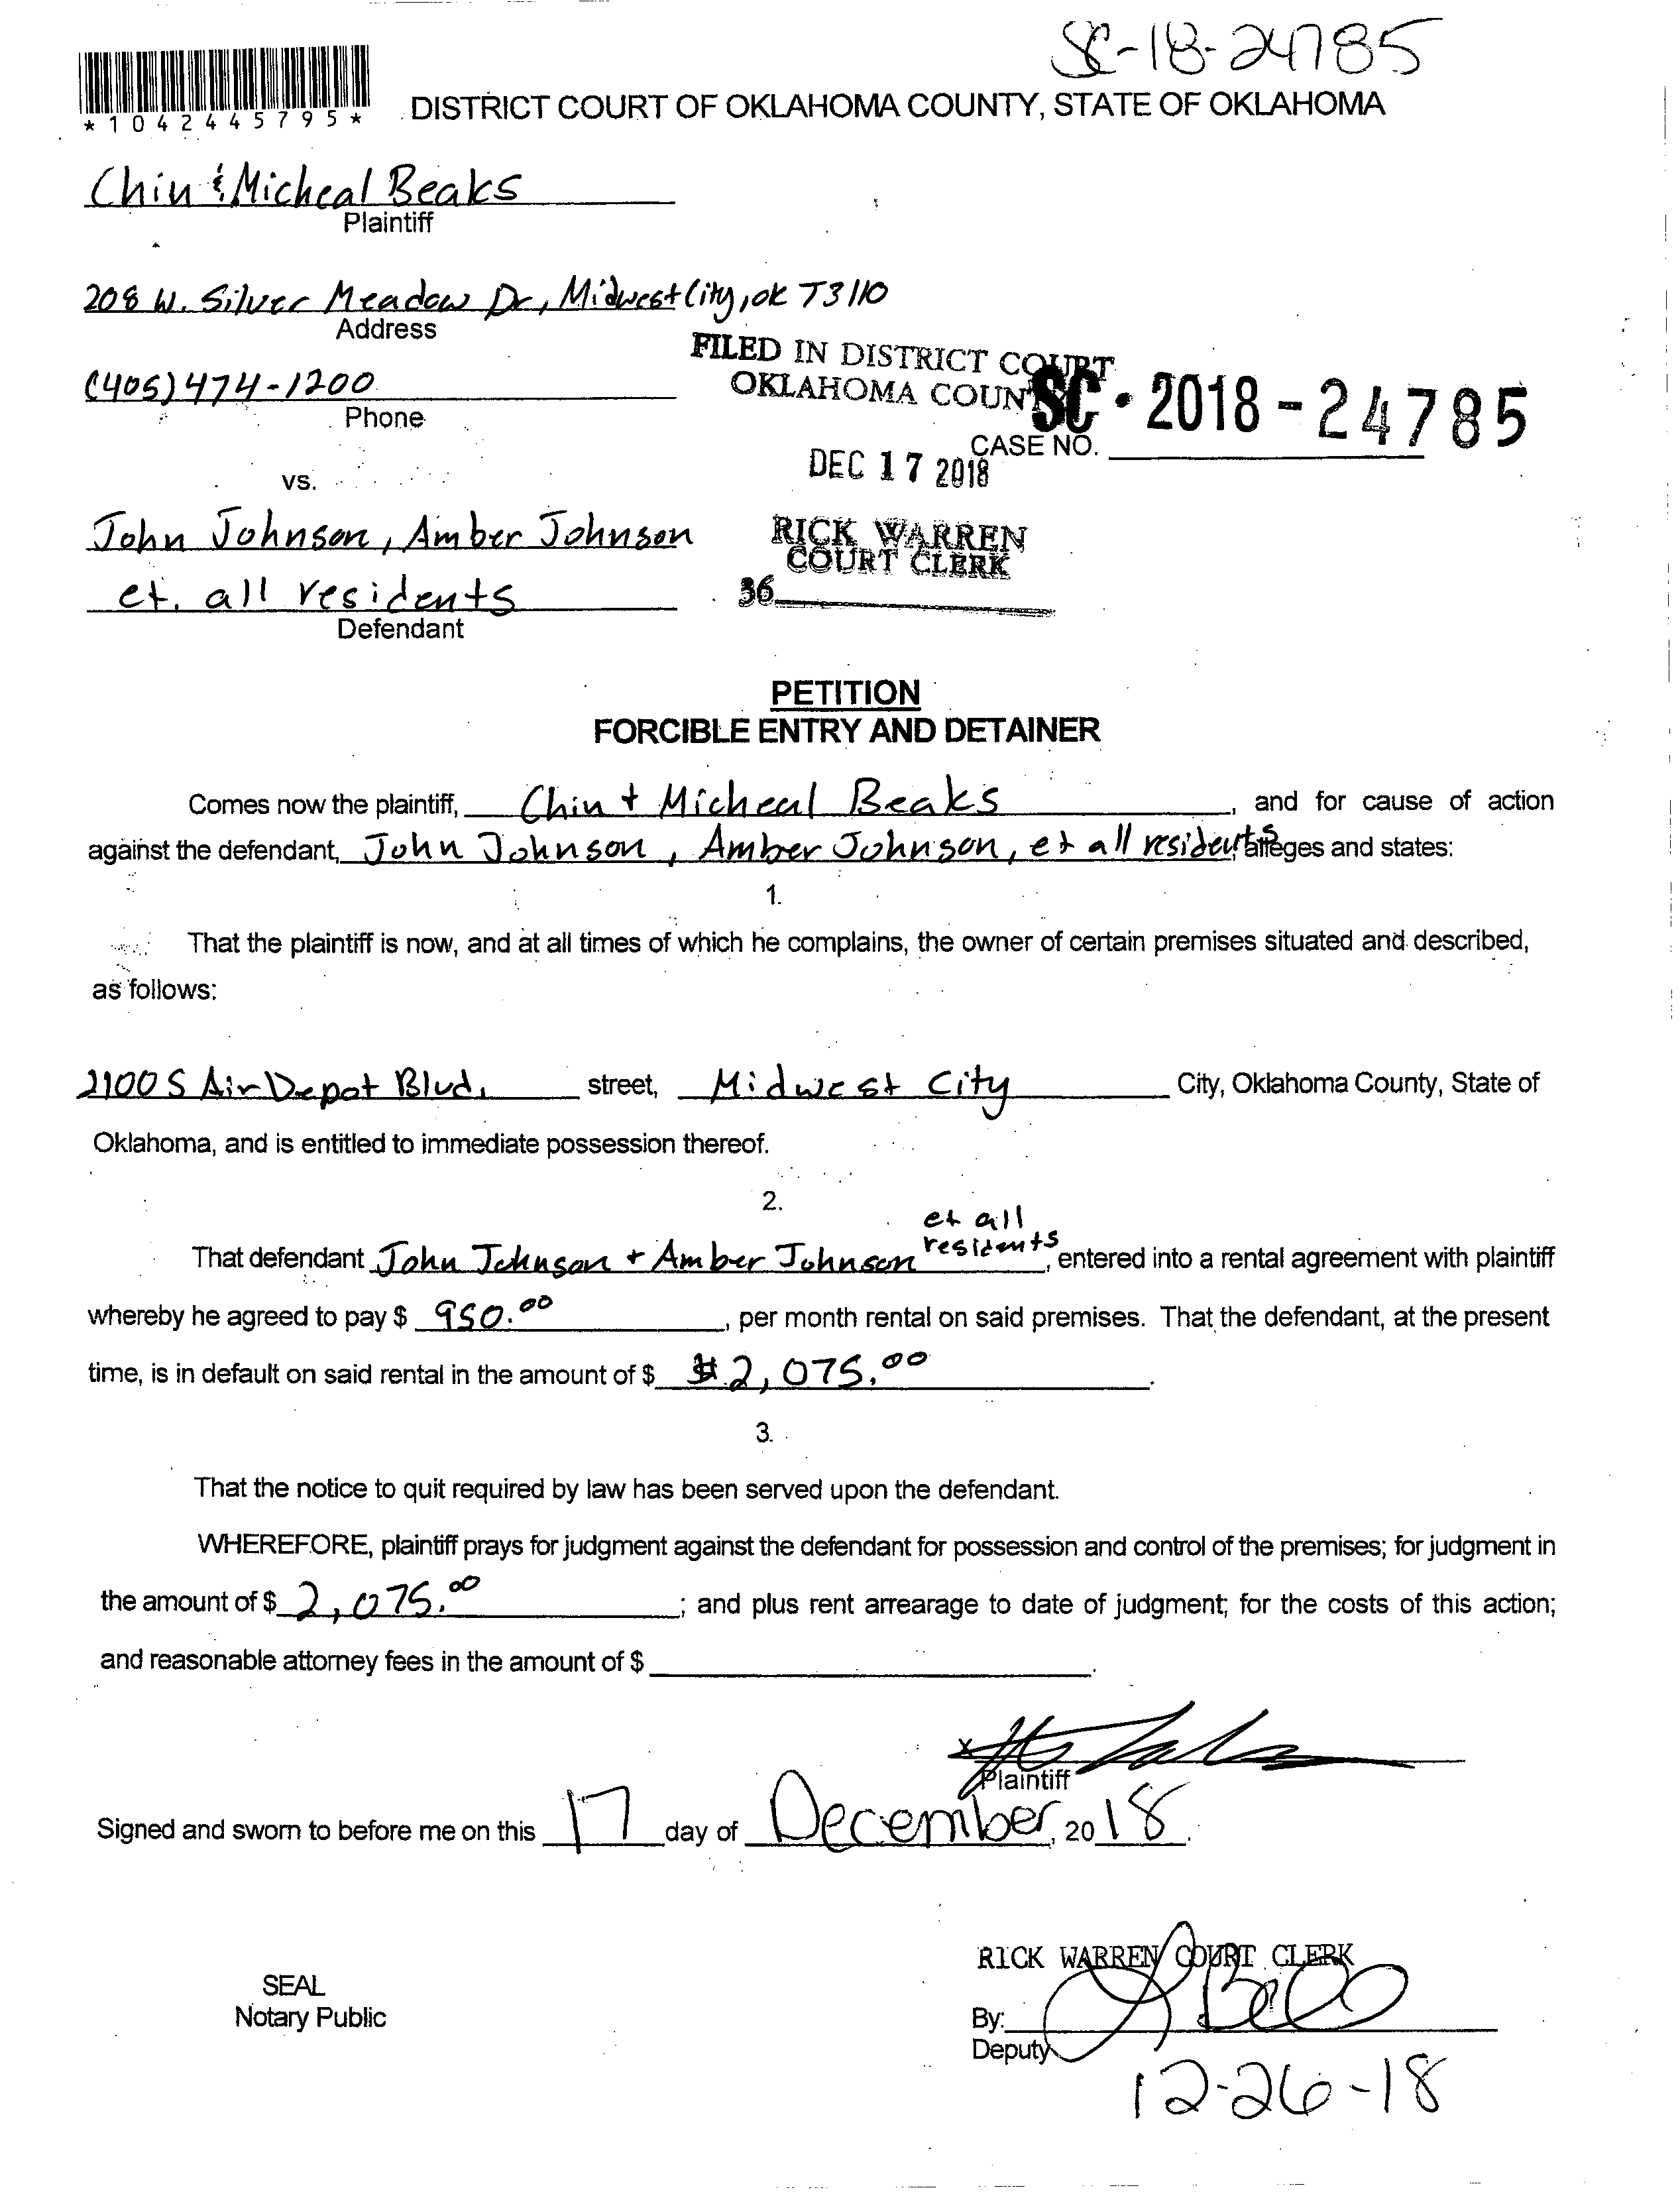 SC-18-24785
*1042445795*
DISTRICT COURT OF OKLAHOMA COUNTY, STATE OF OKLAHOMA
Chin & Micheal Beaks
Plaintiff
208 W. Silver Meadow Dr, Midwest City, ok 73110
Address
FILED IN DISTRICT COURT
OKLAHOMA COUNTY
(405) 474-1200
Phone
SC - 2018 - 24785
CASE NO.
DEC 17 2018
vs.
John Johnson, Amber Johnson
RICK WARREN
COURT CLERK
et. all residents
36
Defendant
PETITION
FORCIBLE ENTRY AND DETAINER
Comes now the plaintiff, Chin + Micheal Beaks, and for cause of action
against the defendant, John Johnson, Amber Johnson, et all residents, alleges and states:
1.
That the plaintiff is now, and at all times of which he complains, the owner of certain premises situated and described,
as follows:
2100 S Air Depot Blvd. street, Midwest City City, Oklahoma County, State of
Oklahoma, and is entitled to immediate possession thereof.
2.
et all
residents
That defendant John Johnson + Amber Johnson, entered into a rental agreement with plaintiff
whereby he agreed to pay $ 950.00, per month rental on said premises. That the defendant, at the present
time, is in default on said rental in the amount of $ $2,075.00.
3.
That the notice to quit required by law has been served upon the defendant.
WHEREFORE, plaintiff prays for judgment against the defendant for possession and control of the premises; for judgment in
the amount of $ 2,075.00; and plus rent arrearage to date of judgment; for the costs of this action;
and reasonable attorney fees in the amount of $
x
Plaintiff
Signed and sworn to before me on this 17 day of December, 2018.
RICK WARREN COURT CLERK
SEAL
Notary Public
By:
Deputy
12-26-18